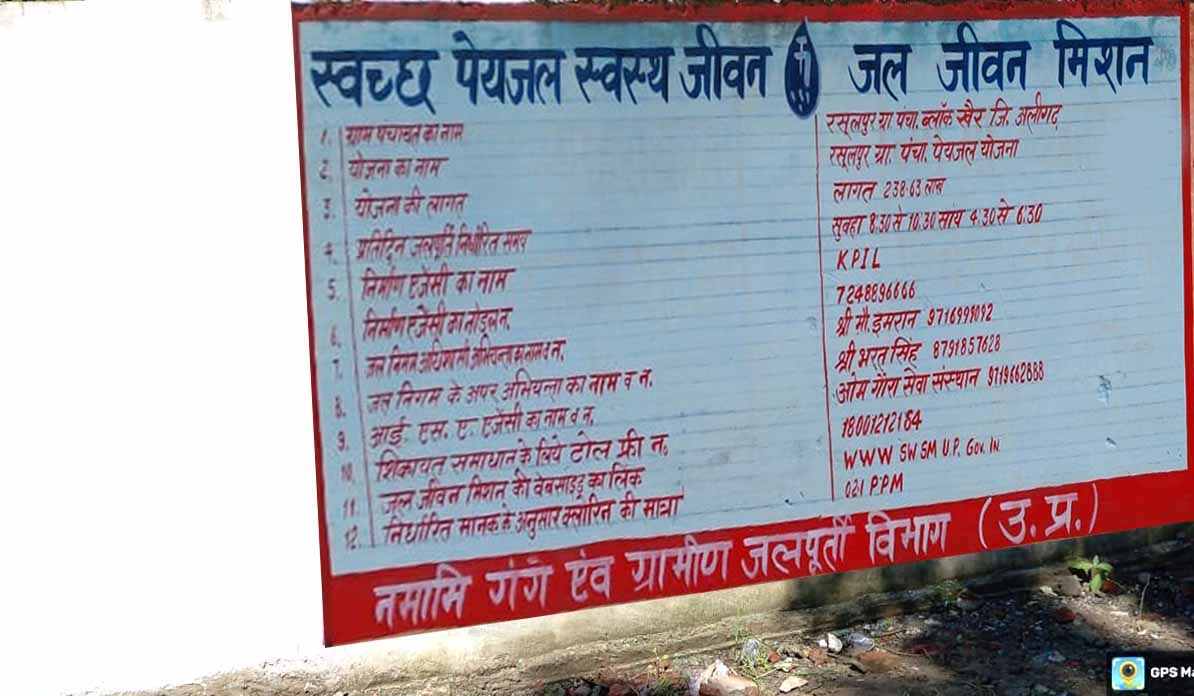 स्वच्छ पेयजल स्वस्थ जीवन जल जीवन मिशन
1. ग्राम पंचायत का नाम रसूलपुर ग्रा. पंचा. ब्लॉक खैर जि. अलीगढ़
2. योजना का नाम रसूलपुर ग्रा. पंचा. पेयजल योजना
3. योजना की लागत लागत 238.63 लाख
4. प्रतिदिन जलपूर्ति निर्धारित समय सुबहा 8.30 से 10.30 सांय 4.30 से 6:30
5. निर्माण एजेंसी का नाम KPIL
6. निर्माण एजेंसी का नोडल न. 7248896666
7. जल निगम अधिशासी अभियन्ता का नाम व न. श्री मौ. इमरान 9716999092
8. जल निगम के अपर अभियन्ता का नाम व न. श्री भरत सिंह 8791857628
9. आई. एस. ए. एजेंसी का नाम व न. ओम गौरा सेवा संस्थान 9719662888
10. शिकायत समाधान के लिये टोल फ्री न. 18001212164
11. जल जीवन मिशन की वेबसाइड का लिंक WWW SWSM U.P. Gov. IN
12. निर्धारित मानक के अनुसार क्लोरिन की मात्रा 021 PPM
नमामि गंगे एंव ग्रामीण जलपूर्ती विभाग (उ.प्र.)
GPS Ma